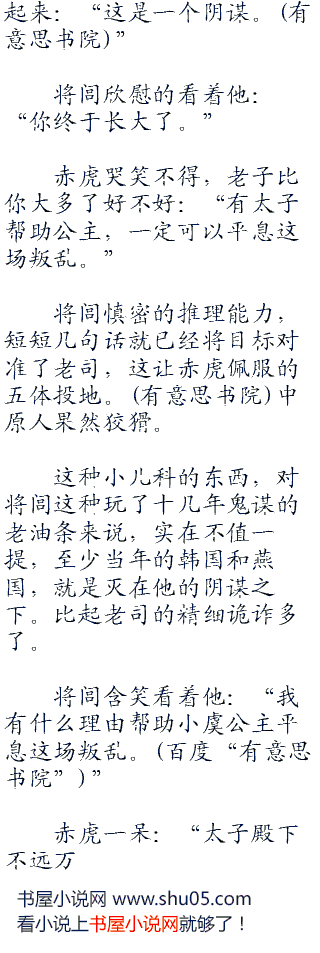 起来：“这是一个阴谋。(有
意思书院)”
将闾欣慰的看着他：
“你终于长大了。”
赤虎哭笑不得，老子比
你大多了好不好：“有太子
帮助公主，一定可以平息这
场叛乱。”
将闾慎密的推理能力，
短短几句话就已经将目标对
准了老司，这让赤虎佩服的
五体投地。(有意思书院)中
原人果然狡猾。
这种小儿科的东西，对
将闾这种玩了十几年鬼谋的
老油条来说，实在不值一
提，至少当年的韩国和燕
国，就是灭在他的阴谋之
下。比起老司的精细诡诈多
了。
将闾含笑看着他：“我
有什么理由帮助小虞公主平
息这场叛乱。(百度“有意思
书院”)”
赤虎一呆：“太子殿下
不远万
书屋小说网 www.shu05.com
看小说上书屋小说网就够了！